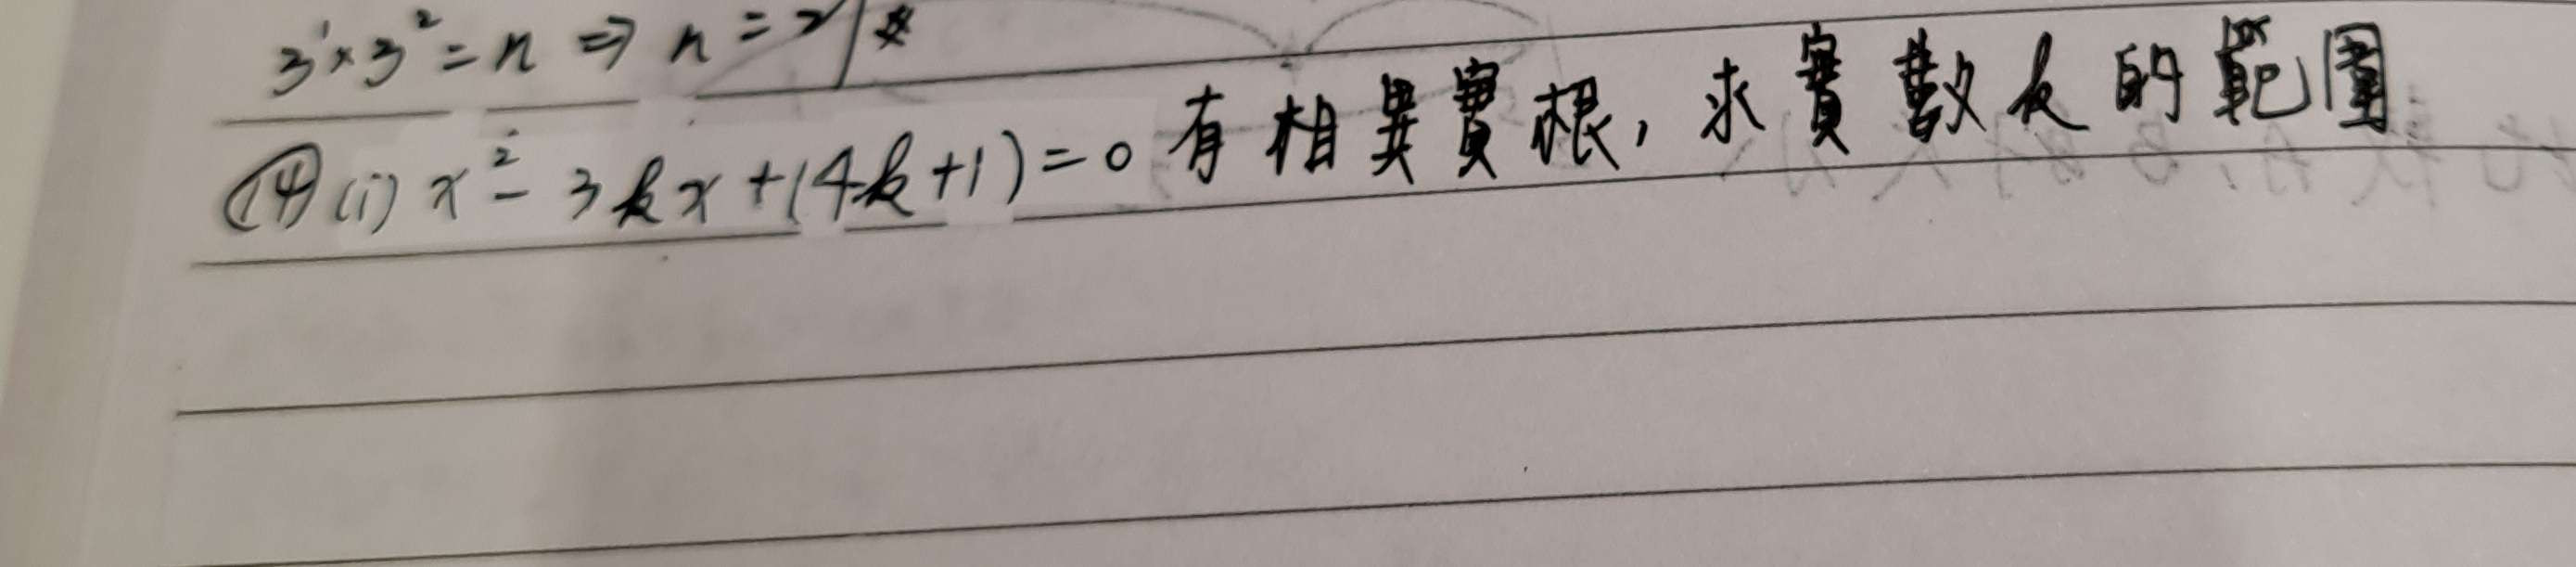 3¹×3²=n ⇒ n=27 *
⑭(i) x²-3kx+(4k+1)=0 有相異實根, 求實數k的範圍